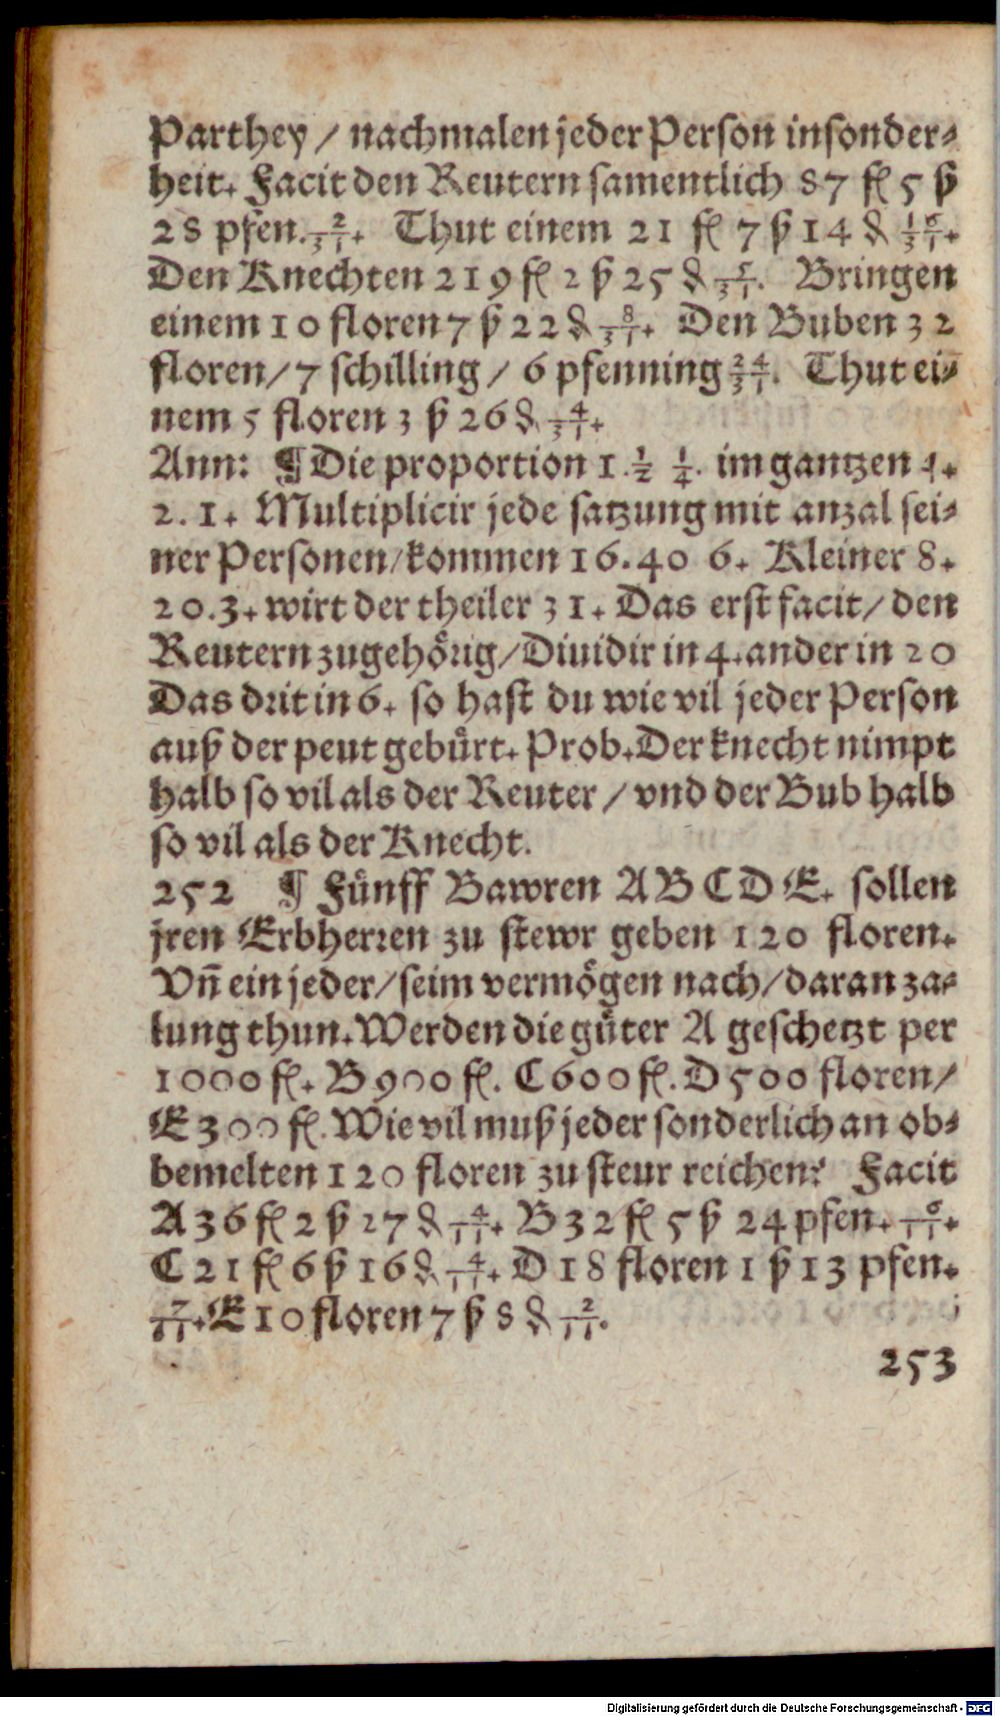 Parthey / nachmalen jeder Person insonder⸗
heit. Facit den Reutern samentlich 87 fl 5 ß
28 pfen. 2/31. Thut einem 21 fl 7 ß 14 ₰ 16/31.
Den Knechten 219 fl 2 ß 25 ₰ 5/31. Bringen
einem 10 floren 7 ß 22 ₰ 8/31. Den Buben 32
floren / 7 schilling / 6 pfenning 24/31. Thut ei⸗
nem 5 floren 3 ß 26 ₰ 4/31.
Ann: ¶ Die proportion 1. 1/2 1/4. im gantzen 4.
2. 1. Multiplicir jede satzung mit anzal sei⸗
ner Personen / kommen 16. 40 6. Kleiner 8.
20. 3. wirt der theiler 31. Das erst facit / den
Reutern zugehörig / Diuidir in 4. ander in 20
Das drit in 6. so hast du wie vil jeder Person
auß der peut gebürt. Prob. Der knecht nimpt
halb so vil als der Reuter / vnd der Bub halb
so vil als der Knecht.
252 ¶ Fünff Bawren A B C D E. sollen
jren Erbherren zu stewr geben 120 floren.
Vn̄ ein jeder / seim vermögen nach / daran za⸗
lung thun. Werden die güter A geschetzt per
1000 fl. B 900 fl. C 600 fl. D 500 floren /
E 300 fl. Wie vil muß jeder sonderlich an ob⸗
bemelten 120 floren zu steur reichen? Facit
A 36 fl 2 ß 27 ₰ 4/11. B 32 fl 5 ß 24 pfen. 6/11.
C 21 fl 6 ß 16 ₰ 4/11. D 18 floren 1 ß 13 pfen.
7/11. E 10 floren 7 ß 8 ₰ 2/11.
253
Digitalisierung gefördert durch die Deutsche Forschungsgemeinschaft - DFG